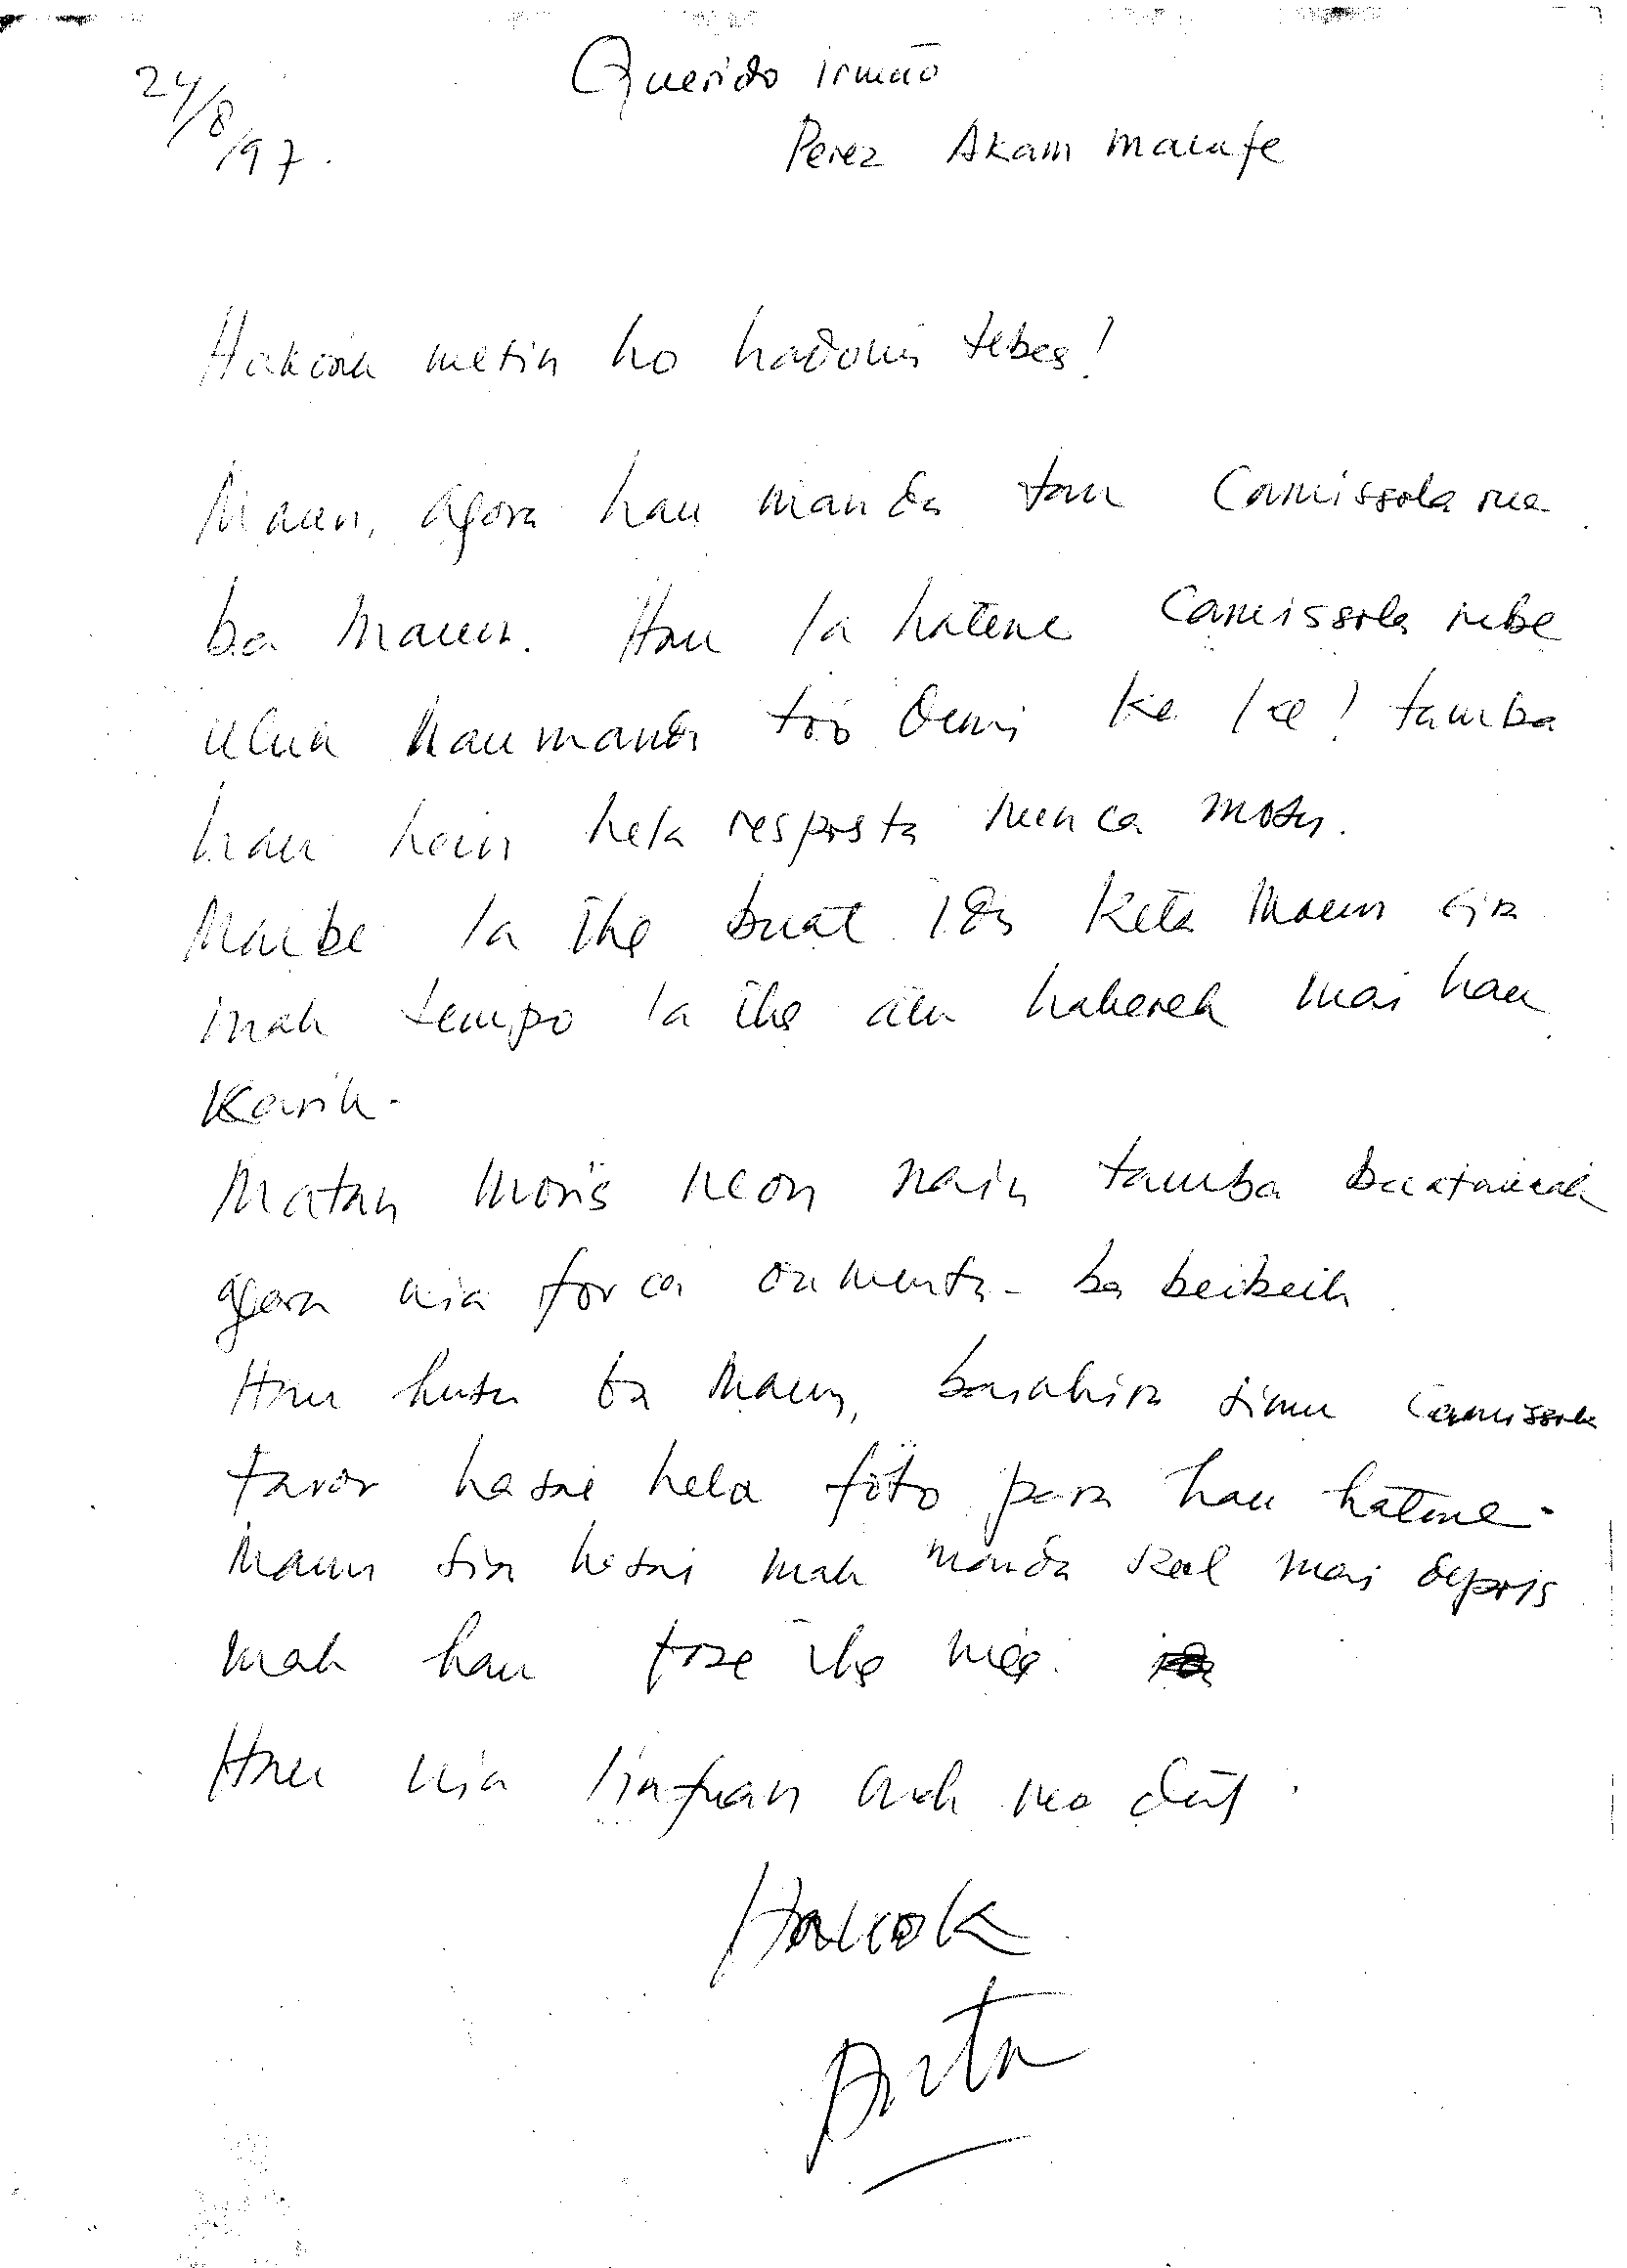 24/8/97.
Querido irmão
Perez Akam Malufe
Hakoak metin ho hadomi tebes!
Maun, agora hau manda tan Camissola rua
ba Maun. Hau la hatene Camissola nebe
uluk hau manda too duni ke lae! tamba
hau hein hela resposta nunca mosu.
Maibe la ihe buat ida keta Maun sira
mak tempo la ihe atu hakerek mai hau
Karik.
Matan moris neon nain tamba buat
agora nia forca aumenta ba beibeik.
Hau husu ba Maun, bainhira simu Camissola
favor hasai hela foto para hau hatene.
Maun sira hasai mak manda sael mai depois
mak hau fase ihe nee.
Hau nia liafuan mak nee deit.
Hakoak